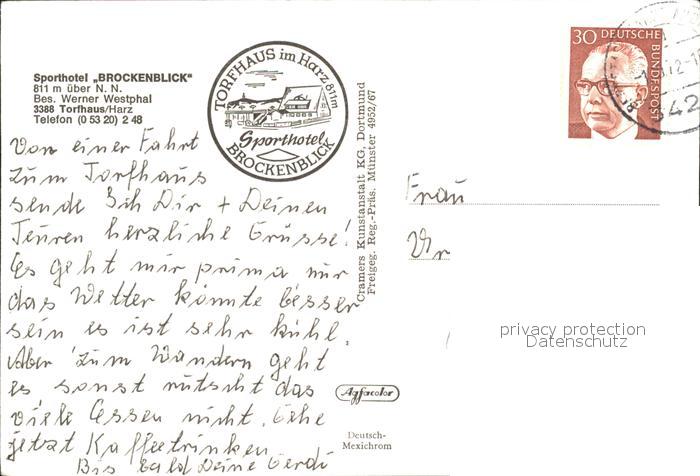 Sporthotel „BROCKENBLICK"
811 m über N. N.
Bes. Werner Westphal
3388 Torfhaus/Harz
Telefon (0 53 20) 2 48
TORFHAUS im Harz 811m
Sporthotel
BROCKENBLICK
Von einer Fahrt
zum Torfhaus
sende Ich Dir + Deinen
Teuren herzliche Grüsse!
Es geht mir prima nur
das Wetter könnte besser
sein es ist sehr kühl.
Aber zum Wandern geht
es sonst rutscht das
viele Essen nicht. Gehe
jetzt Kaffeetrinken
Bis bald Deine Gerdi
Cramers Kunstanstalt KG, Dortmund
Freigeg. Reg.-Präs. Münster 4952/67
30 DEUTSCHE
BUNDESPOST
342
Frau
privacy protection
Datenschutz
Agfacolor
Deutsch-
Mexichrom